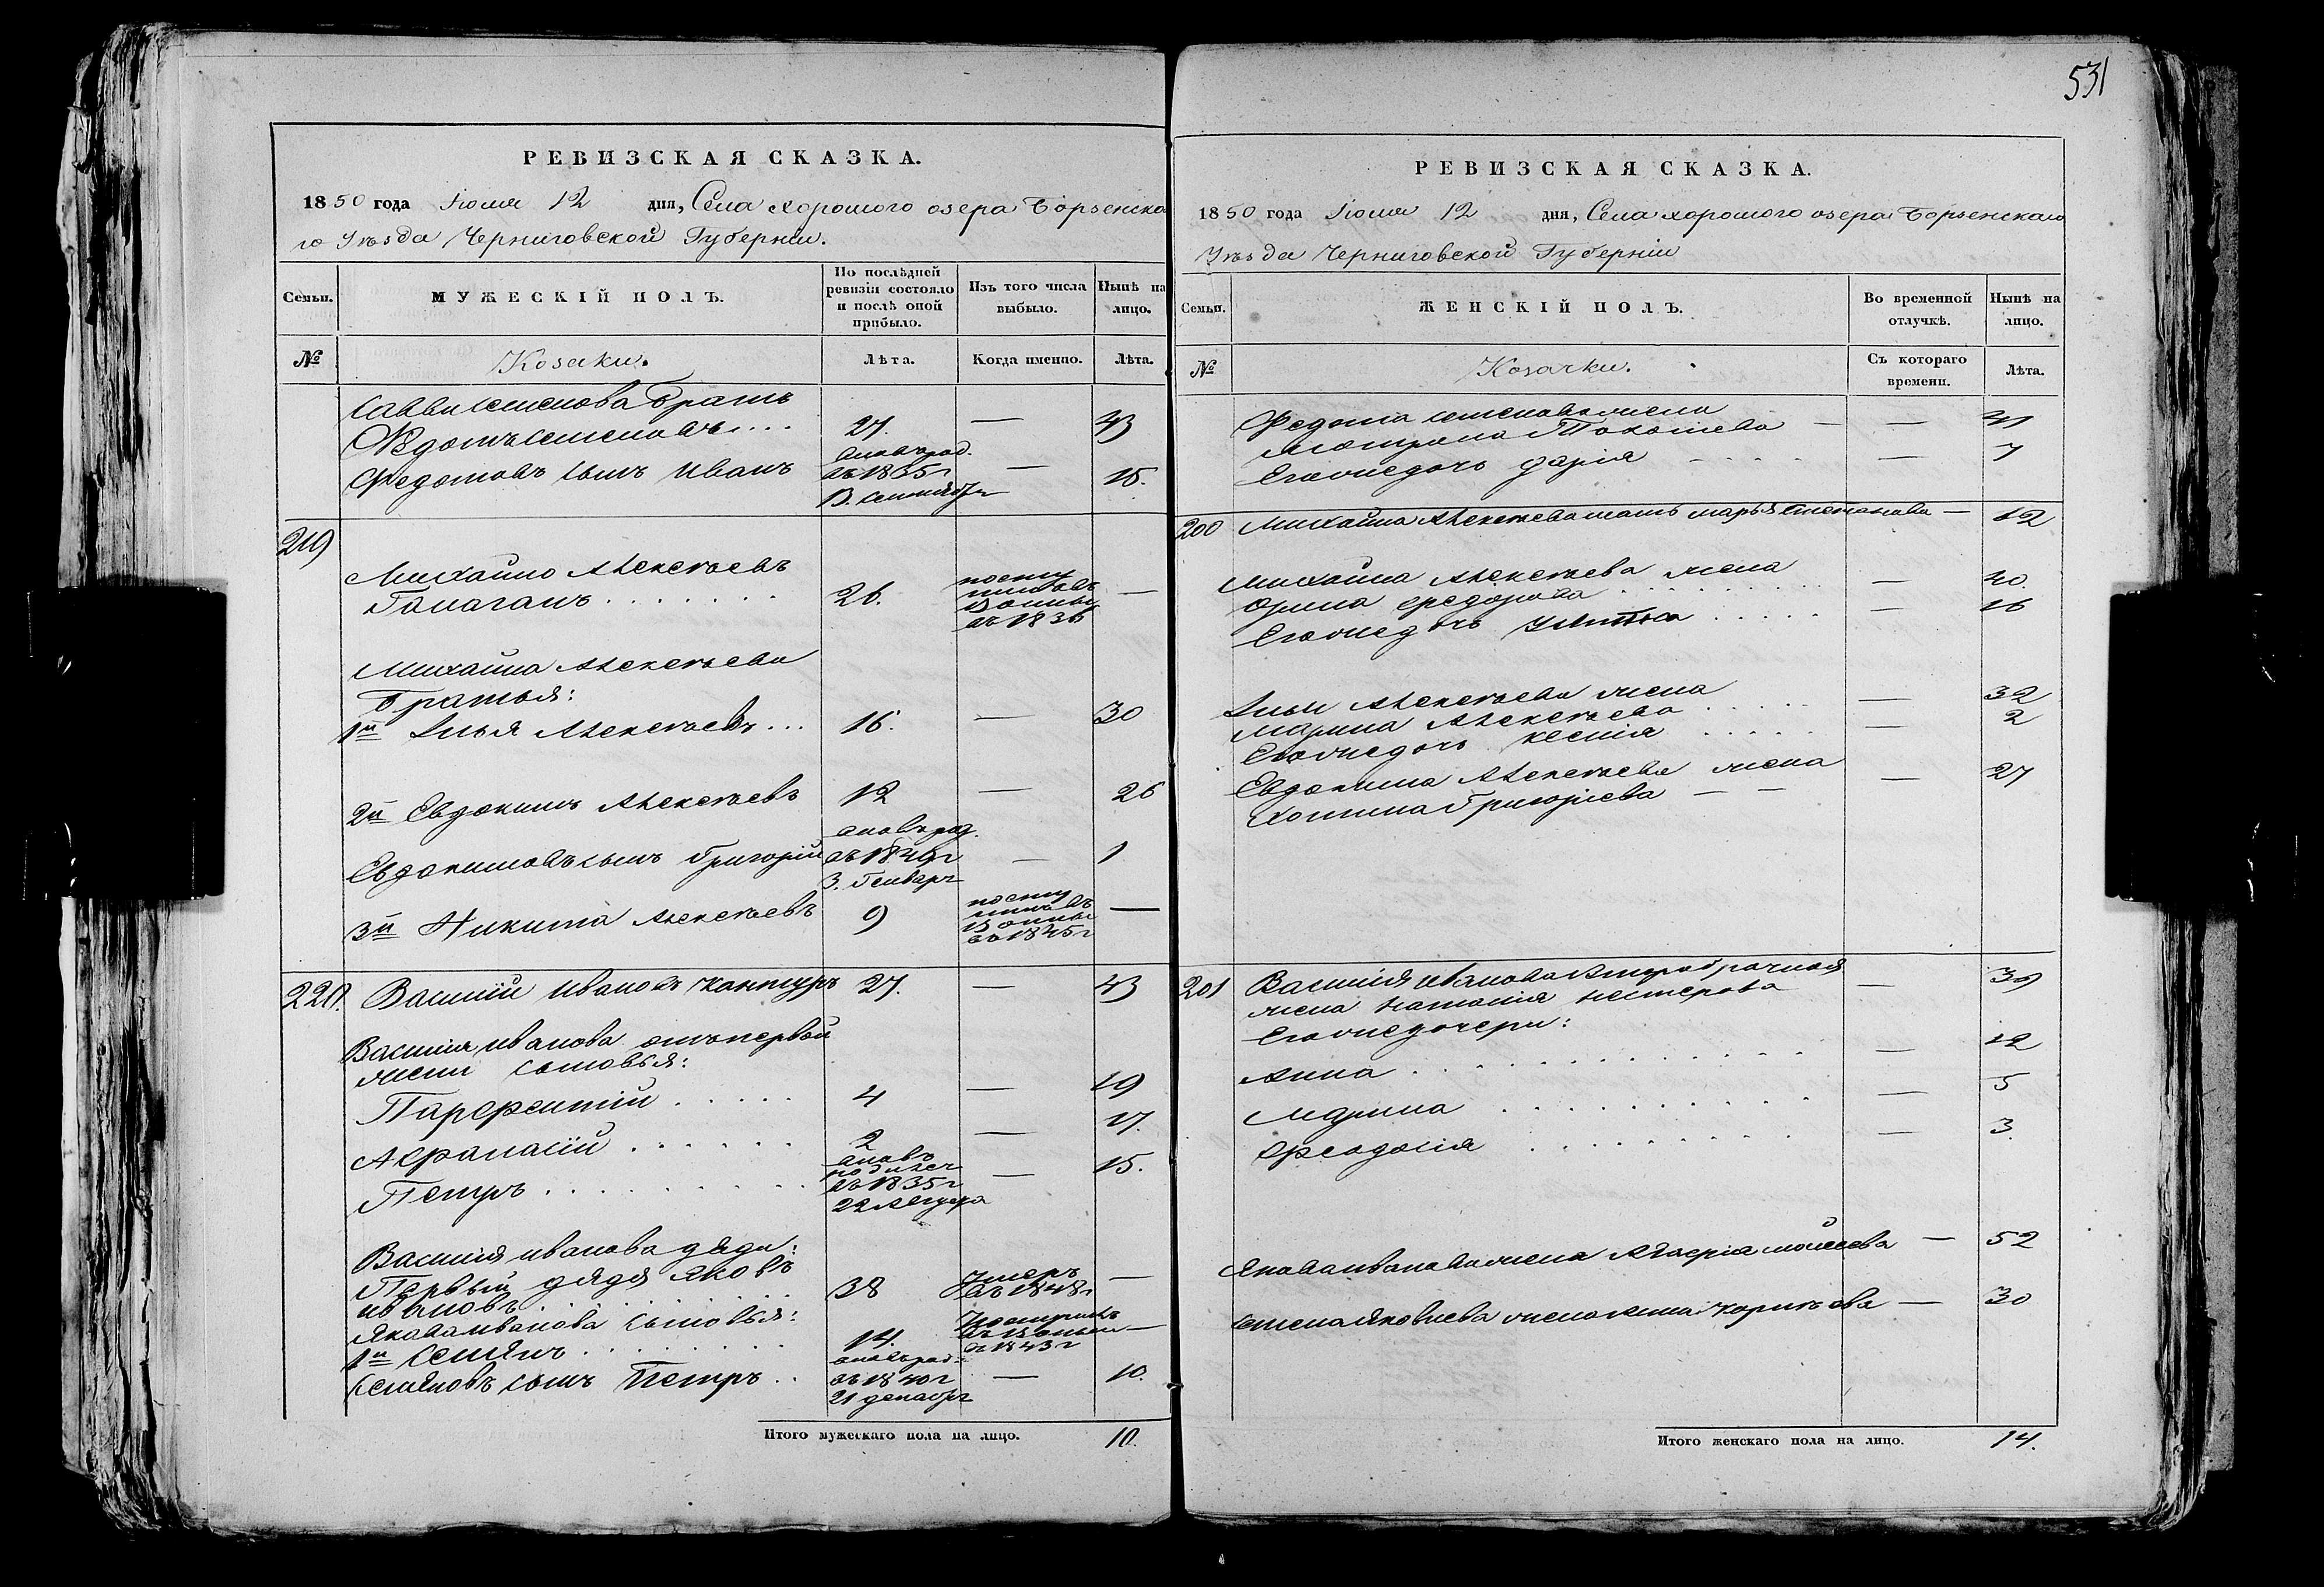 531
РЕВИЗСКАЯ СКАЗКА.
1850 года Іюня 12 дня, Села хорошого озера Борзенска
го Уѣзда Черниговской Губерніи.
Семьи. МУЖЕСКІЙ ПОЛЪ. По послѣдней ревизіи состояло и послѣ оной прибыло. Изъ того числа выбыло. Нынѣ на лицо.
№ Козаки. Лѣта. Когда именно. Лѣта.
Саввы Семенова братъ
Федотъ Семеновъ.... 27. — 43
Федотовъ сынъ Иванъ вновь род. въ 1835 г 13. сентября — 15.
219
Михайло Алексѣевъ
Галаганъ....... 26. посту пилъ въ въ 1836 —
Михайла Алексѣева
братья:
1й Илья Алексѣевъ... 16. — 30
2й Евдокимъ Алексѣевъ 12 — 26
Евдокимовъ сынъ Григорій вновь род. въ 1849 г 3. Генваря — 1
3й Никита Алексѣевъ 9 посту пилъ въ въ 1845 г —
220. Василій Ивановъ 27. — 43
Василія Иванова отъ первой
жены сыновья:
Парфентій..... 4 — 19
Афанасій...... 2 — 17.
Петръ......... вновь родился въ 1835 г 22 — 15.
Василія Иванова дяди:
Первый дядя Яковъ
Ивановъ....... 38 Умеръ въ 1848 г —
Якова Иванова сыновья:
1й Семенъ....... 14. Поступилъ въ 1843 г —
Семеновъ сынъ Петръ.. вновь род. въ 1840 г 21 декабря — 10.
Итого мужескаго пола на лицо. 10.
РЕВИЗСКАЯ СКАЗКА.
1850 года Іюня 12 дня, Села хорошого озера Борзенскаго
Уѣзда Черниговской Губерніи
Семьи. ЖЕНСКІЙ ПОЛЪ. Во временной отлучкѣ. Нынѣ на лицо.
№ Козачки. Съ котораго времени. Лѣта.
Федота Семенова жена
Мотрона — —
Его же дочь Дарія — — 7
200 Михайла Алексѣева мать Марья Степанова —
Михайла Алексѣева жена
Орина Федорова — 40.
Его же дочь — 16
Ильи Алексѣева жена
Марина Алексѣева — 32
Его же дочь Ксенія — 2
Евдокима Алексѣева жена
Григоріева — — — 27
201 Василія Иванова второбрачная
жена Наталія Нестерова — 39
Его же дочери:
Анна — 12
Марина — 5
Феодосія — 3.
Якова Иванова жена Агафія Моисеева — 52
Семена Яковлева жена Анна — 30
Итого женскаго пола на лицо. 14.